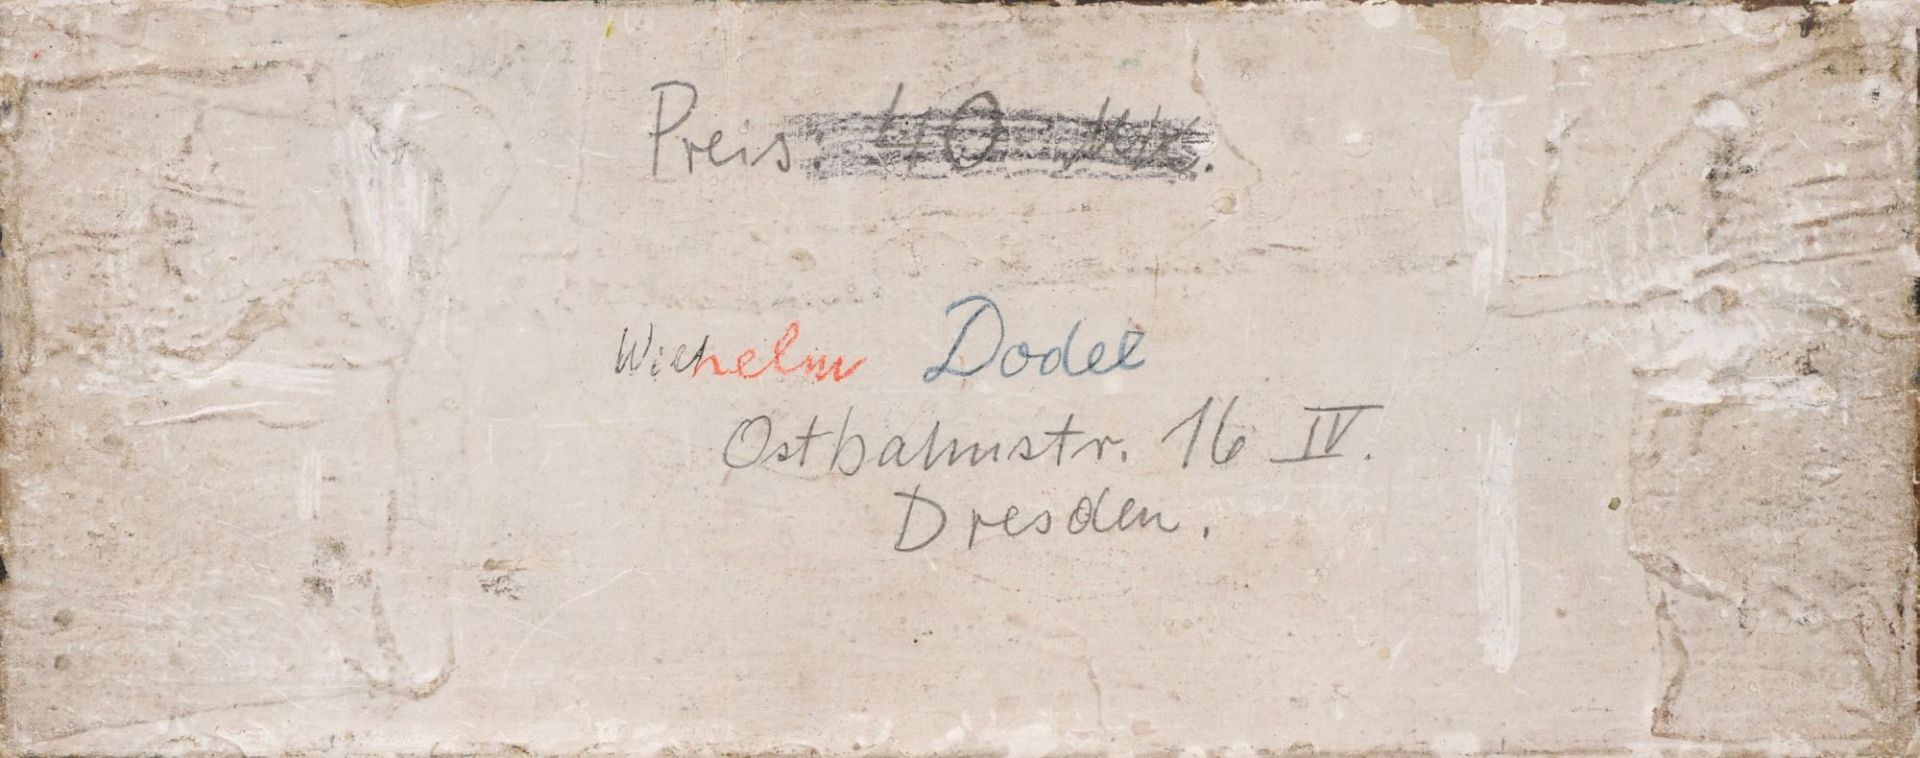 Preis: 40 Mk.
Wilhelm Dodel
Ostbahnstr. 16 IV.
Dresden.